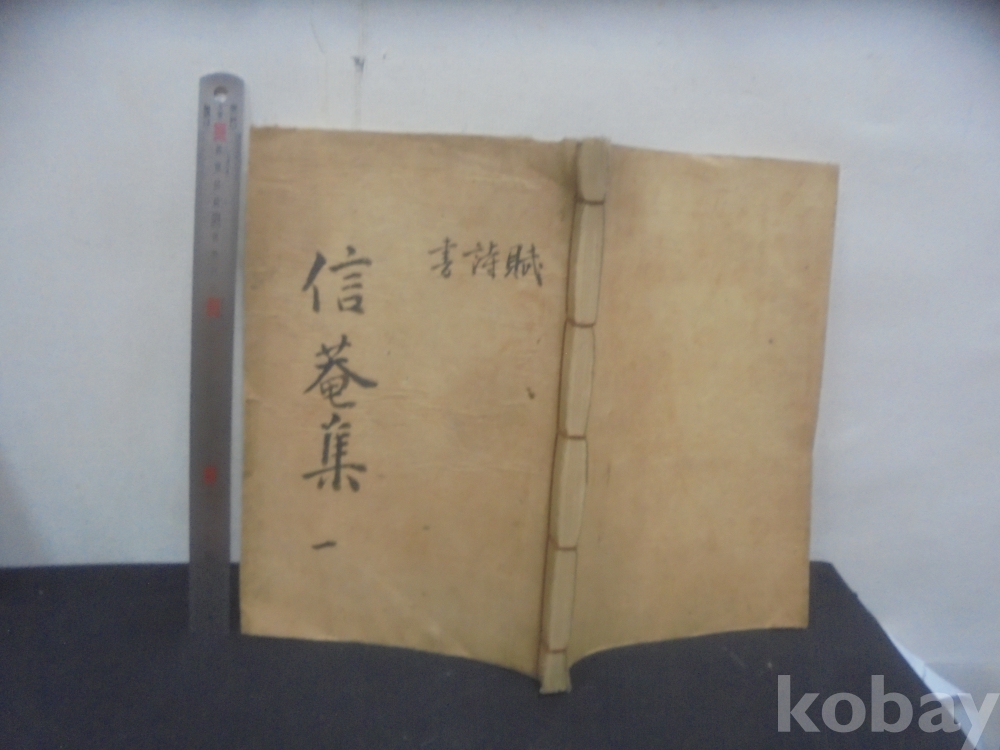 信菴集 一
賦詩書
kobay